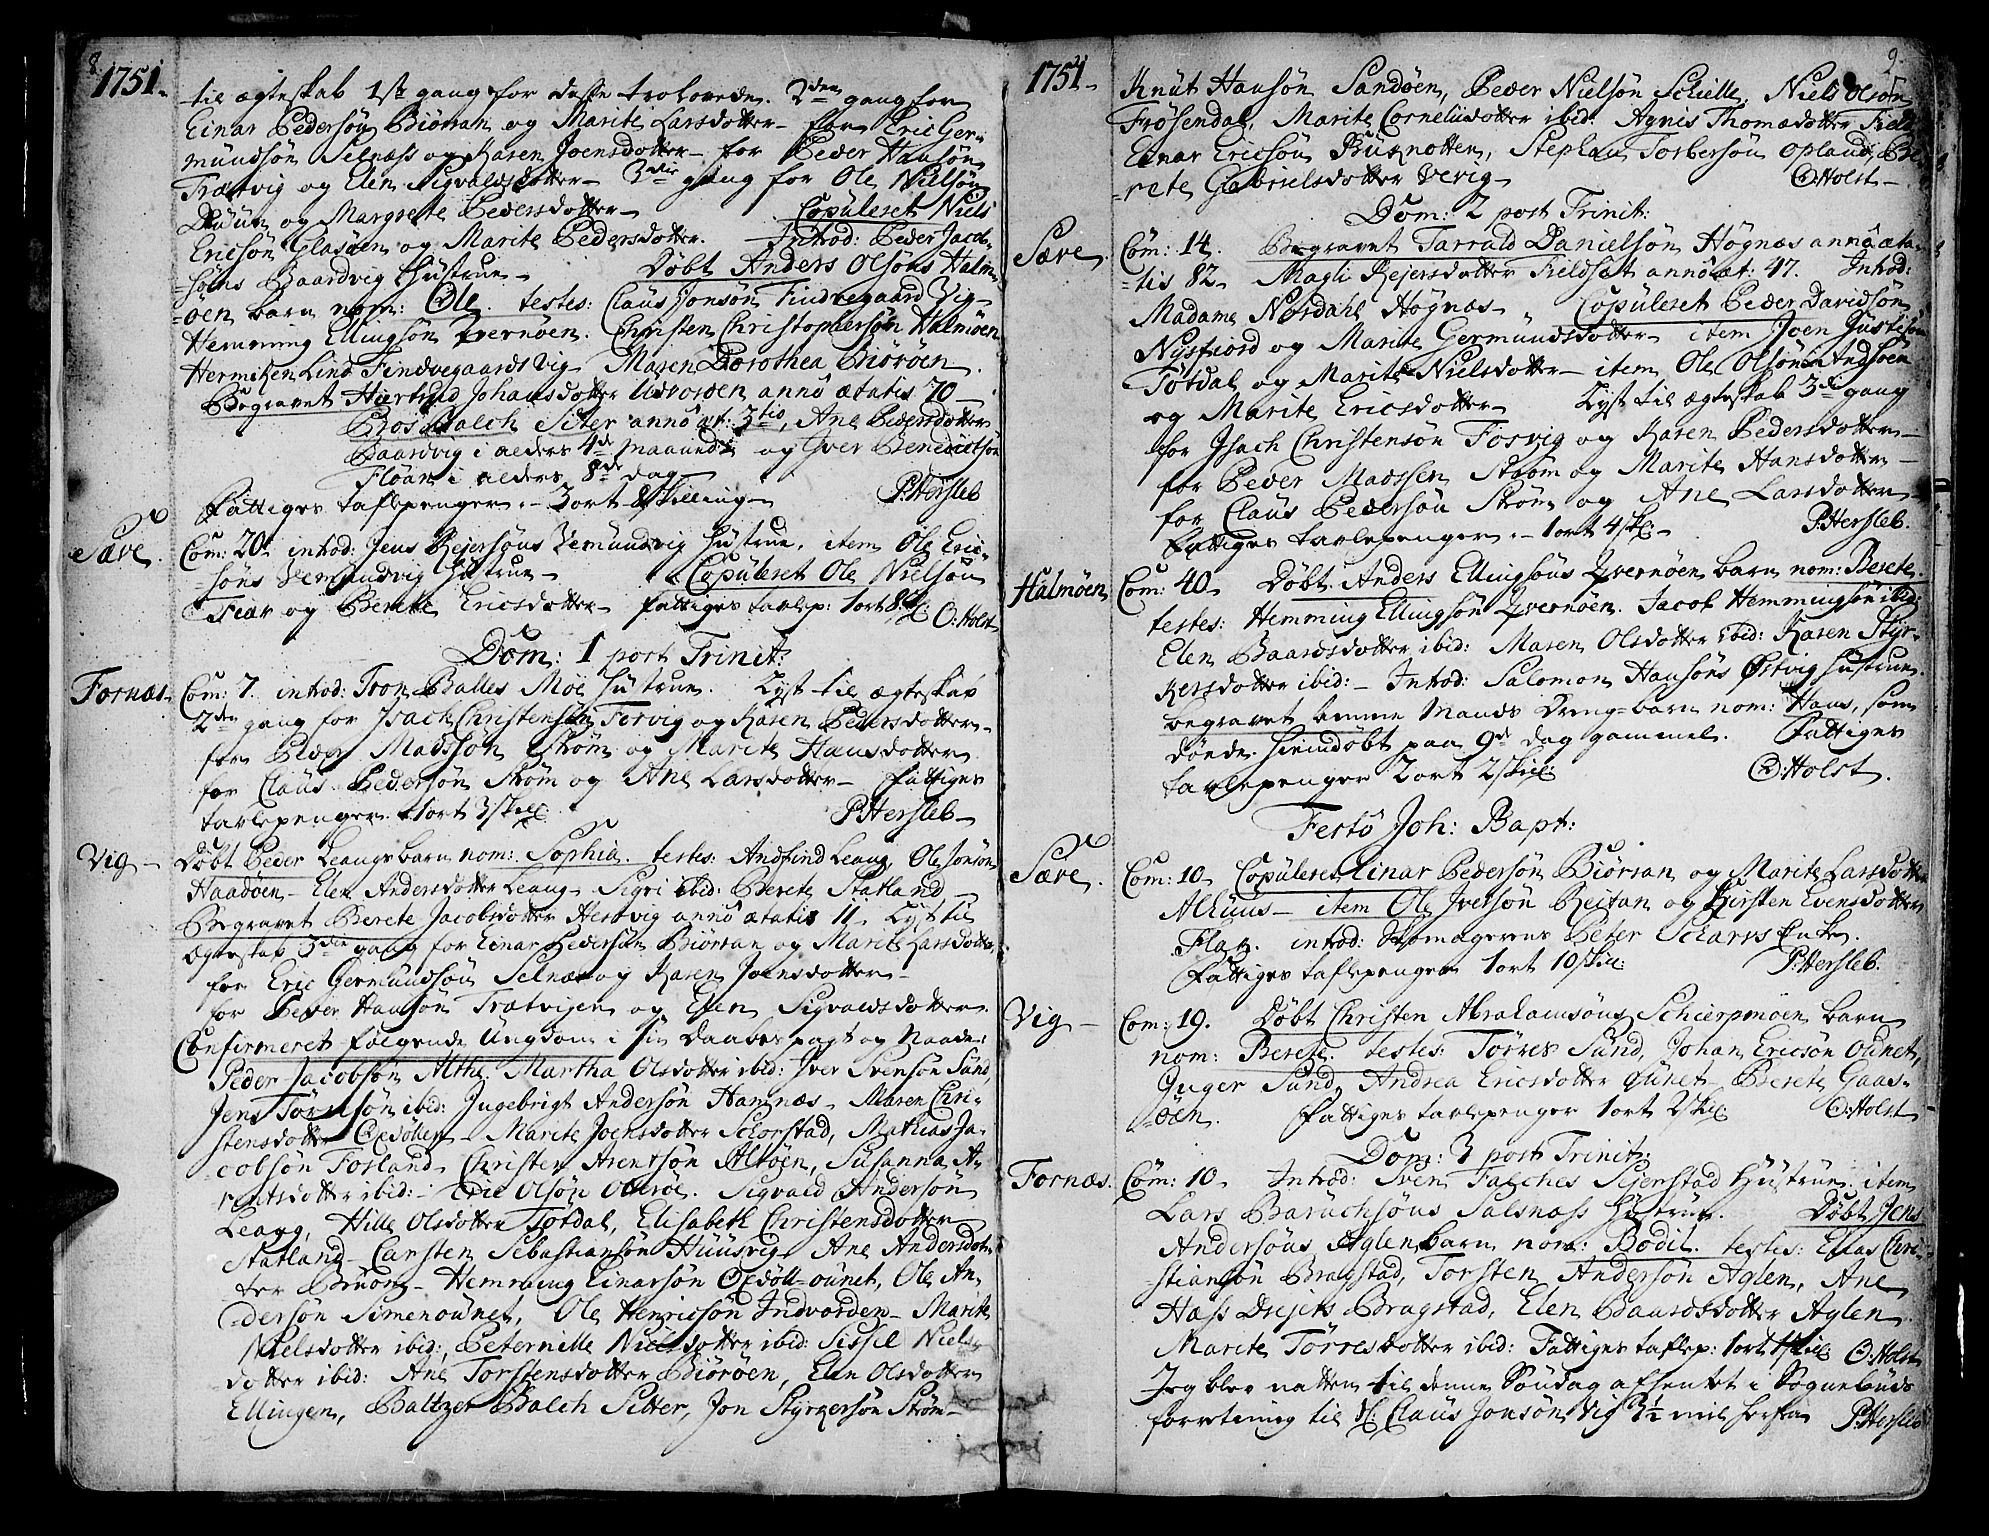 8.
1751.
til ægteskab 1ste gang for disse trolovede. 2den gang for
Einar Pedersøn Biørsan og Marite Larsdotter - for Eric Ger-
mundsøn Selnæss og Karen Joensdotter - for Peder Hansøn
Trætvig og Elen Sigvaldsdotter - 3die gang for Ole Nielsøn
Duun og Margrete Pedersdotter - Copuleret Niels
Ericsøn Glasøen og Marite Pedersdotter. Introd: Peder Jacob-
søns Baardvig Hustrue - Døbt Anders Olsøns Halm-
øen barn nom: Ole. testes: Claus Jonsøn Findvegaard Vig-
Hemming Ellingsøn Qvernøen. Christen Christophersøn Halmøen
Hermeken Lind Findvegaards Vig Maren Dorothea Biørøen.
Begravet Hiertrud Johansdotter Udvorden anno ætatis 70 -
Balch Siter anno æt: 3tio, Ane Pedersdotter
Baardvig i alders 4de maaned og Iver Benedictsøn
Floan i alders 8de dag -
Fattiges taflepenger. - 3 ort 8 skilling - P: Hersleb
Sæve. Com: 20. introd: Jens Rejersøns Vemundvig Hustrue. item Ole Eric-
søns Vemundvig Hustrue - Copuleret Ole Nielsøn
Fear og Berete Ericsdotter - Fattiges tavlep: 1 ort 8 sk: O: Holst
Dom: 1 post Trinit:
Fornæs. Com: 7. introd: Tron Balles Moe Hustrue. Lyst til ægteskab
2den gang for Isach Christensøn Forvig og Karen Pedersdotter -
for Peder Madssøn Strøm og Marite Hansdotter
for Claus Pedersøn Strøm og Ane Larsdotter - Fattiges
tavlepenger 1 ort 3 skil. P: Hersleb -
Vig - Døbt Peder Leangs barn nom: Sophia. testes: Andfind Leang, Ole Jonsøn
Haadøen - Elen Andersdotter Leang - Sigri ibid: Berete Statland -
Begravet Berete Jacobsdotter Hestvig anno ætatis 11. Lyst til
Ægteskab 3die gang for Einar Pedersøn Biørsan og Marite Larsdotter,
for Eric Germundsøn Selnæs og Karen Joensdotter -
for Peder Hansøn Trætvigen og Elen Sigvaldsdotter.
Confirmeret følgende Ungdom i sin Daabes pagt og Naade:
Peder Jacobsøn Althe. Martha Olsdotter ibid: Iver Svensøn Sund,
Jens ibid: Ingebrigt Andersøn Hamnæs - Maren Chri-
stensdotter Opdøllen - Marite Joensdotter Schorstad, Mathias Ja-
cobsøn Forland. Christen Arentsøn Altøen, Susanna A-
rentsdotter ibid: - Eric Olsøn Sigvald Andersøn
Leang, Hille Olsdotter Tøtdal, Elisabeth Christensdotter
Statland - Carsten Sebastiansøn Huusvig - Ane Andersdot-
ter Bruon - Hemming Einarsøn Opdøll-ounet, Ole An-
dersøn Simenounet, Ole Henricsøn Indvorden - Marite
Nielsdotter ibid:, Peternille Nielsdotter ibid: Sissil Niels-
dotter ibid: Ane Torstensdotter Biørøen, Elen Olsdotter
Ellingen, Baltzer Balch Sitter, Jon Styrkersøn Strøm -
9.
1751.
Knut Hansøn Sandøen, Peder Nielsøn Schielle, Niels Olsøn
Frøsendal, Marite Cornelisdotter ibid: Agnis Thomædotter
Einar Ericsøn Stephen Torbersøn Opland, Be-
rete Gabrielsdotter Verig - O: Holst -
Dom: 2 post Trinit:
Sæve. Com: 14. Begravet Tarrald Danielsøn Høgnæs anno æta-
tis 82. Magli Rejersdotter Fieldsæt anno æt: 47. Introd:
Madame Nordahl Høgnæs - Copuleret Peder Davidsøn
Nysfiord og Marite Germundsdotter item Joen Justisøn
Tøtdal og Marite Nielsdotter - item Ole Olsøn Indsøen
og Marite Ericsdotter - Lyst til ægteskab 3de gang
for Isach Christensøn Forvig og Karen Pedersdotter -
for Peder Madssen Strøm og Marite Hansdotter -
for Claus Pedersøn Strøm og Ane Larsdotter
Fattiges tavlepenger. - 1 ort 4 sk: - P: Hersleb.
Halmøen Com: 40. Døbt Anders Ellingsøns Qvernøen barn nom: Berete.
testes: Hemming Ellingsøn Qvernøen. Jacob Hemmingsøn ibid:
Elen Baardsdotter ibid: Maren Olsdotter ibid: Karen Styr-
kersdotter ibid: - Introd: Salomon Hansøns Østvig Hustrue.
begravet samme Mands Dreng-barn nom: Hans, som
døede hiemdøbt paa 9de dag gammel. Fattiges
tavlepenger 2 ort 2 skil: O: Holst.
Festo Joh: Bapt:
Sæve. Com: 10. Copuleret Einar Pedersøn Biørsan og Marite Larsdotter
Alhuus - item Ole Iversøn Reitan og Kirsten Evensdotter
Flaz. introd: Skomagerens Peter Scharvs Enke.
Fattiges taflepenger 1 ort 10 skil: P: Hersleb.
Vig - Com: 19. Døbt Christen Abrahamsøns Schierpmøen barn
nom: Berete. testes: Tørres Sund, Johan Ericsøn Ounet,
Inger Sund, Andrea Ericsdotter Ounet - Berete Gaas-
øen. Fattiges tavlepenger 1 ort 2 skil: O: Holst
Dom: 3 post Trinit:
Fornæs. Com: 10. Introd: Sven Falches Sejerstad Hustrue. item
Lars Baruchsøns Salsnæss Hustrue. Døbt Jens
Andersøns Aglen barn nom: Bodil. testes: Elias Chri-
stiansøn Bragstad, Torsten Andersøn Aglen, Ane
Hass Drejers Bragstad, Elen Baardsdotter Aglen.
Marite Tørresdotter ibid: Fattiges taflep: 1 ort skil: O: Holst
Jeg blev natten til denne Søndag afhentet i Sognebuds
forretning til Sl: Claus Jonsøn Vig 3½ mil herfra P: Hersleb